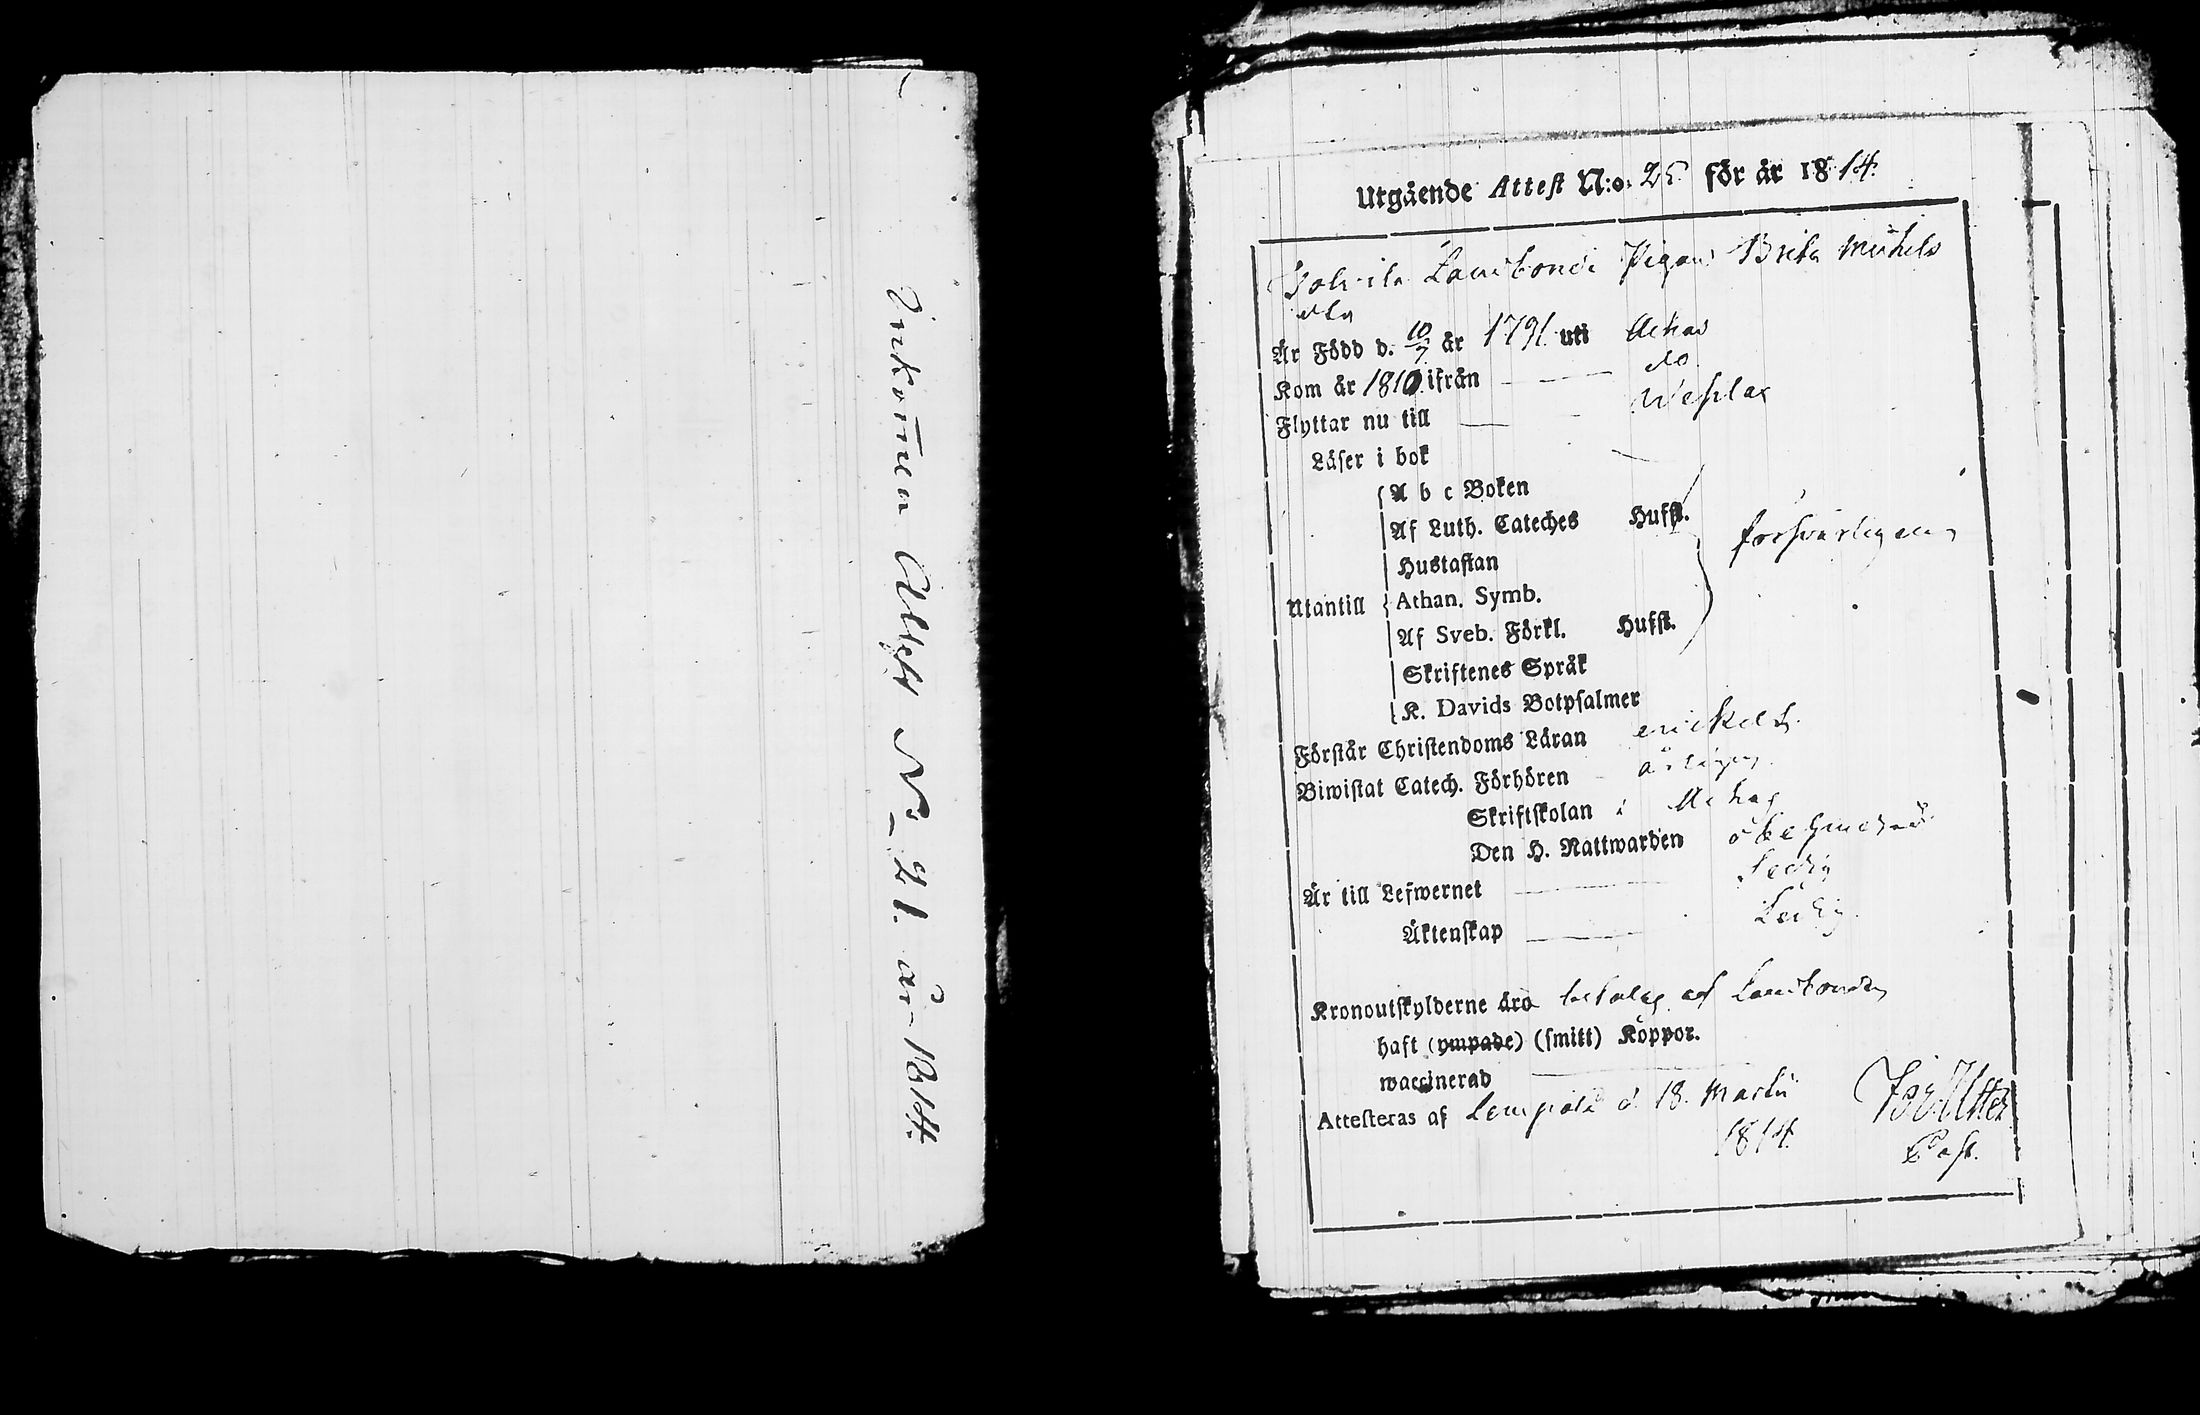 Inkommen Attest No 21. år 1814.
Utgående Attest N:o. 25 för år 1814.
Landbonde Pigan Brita Michels
dtr
Är Född d. 10/7 år 1791 uti Achas
Kom år 1810 ifrån do
Flyttar nu till Wesilax
Läser i bok
A b c Boken
Af Luth. Cateches Hufst.
Hustaflan
försvarligen
Utantill Athan. Symb.
Af Sveb. Förkl. Hufst.
Skriftenes Språk
K. Davids Botpsalmer
Förstår Christendoms Läran enskelt
Biwistat Catech. Förhören årligen
Skriftskolan i Achas
Den H. Nattwarden
Är till Lefwernet
Äktenskap Ledig
Kronoutskylderne äro betalas af Landbonden
haft (ympade) (smitt) Koppor.
waccinerad
Attesteras af Lempälä d. 18. Martii
1814.
Past.